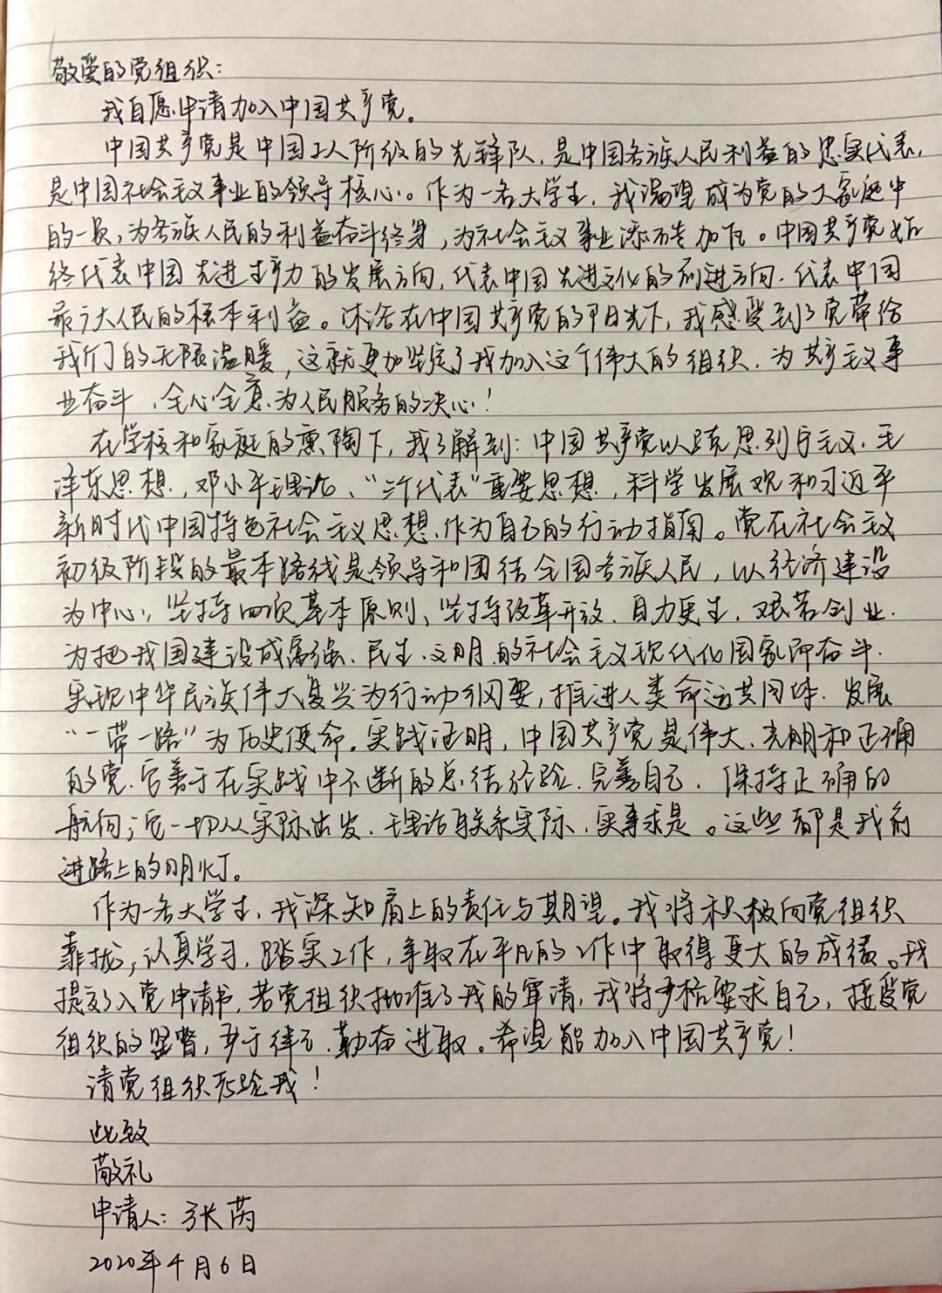 敬爱的党组织:
我自愿申请加入中国共产党。
中国共产党是中国工人阶级的先锋队,是中国各族人民利益的忠实代表,
是中国社会主义事业的领导核心。作为一名大学生,我渴望成为党的大家庭中
的一员,为各族人民的利益奋斗终身,为社会主义事业添砖加瓦。中国共产党始
终代表中国先进生产力的发展方向,代表中国先进文化的前进方向,代表中国
最广大人民的根本利益。沐浴在中国共产党的阳光下,我感受到了党带给
我们的无限温暖,这就更加坚定了我加入这个伟大的组织,为共产主义事
业奋斗、全心全意为人民服务的决心!
在学校和家庭的熏陶下,我了解到:中国共产党以马克思列宁主义、毛
泽东思想、邓小平理论、“三个代表”重要思想、科学发展观和习近平
新时代中国特色社会主义思想,作为自己的行动指南。党在社会主义
初级阶段的最本路线是领导和团结全国各族人民,以经济建设
为中心,坚持四项基本原则、坚持改革开放、自力更生,艰苦创业,
为把我国建设成富强、民主、文明的社会主义现代化国家而奋斗.
实现中华民族伟大复兴为行动纲要,推进人类命运共同体.发展
“一带一路”为历史使命。实践证明,中国共产党是伟大、光明和正确
的党.它善于在实践中不断的总结经验,完善自己,保持正确的
航向;它一切从实际出发,理论联系实际,实事求是。这些都是我前
进路上的明灯。
作为一名大学生,我深知肩上的责任与期望。我将积极向党组织
靠拢,认真学习,踏实工作,争取在平凡的工作中取得更大的成绩。我
提交入党申请书,若党组织批准了我的申请,我将严格要求自己,接受党
组织的监督,严于律己,勤奋进取。希望能加入中国共产党!
请党组织考验我!
此致
敬礼
申请人:张芮
2020年4月6日